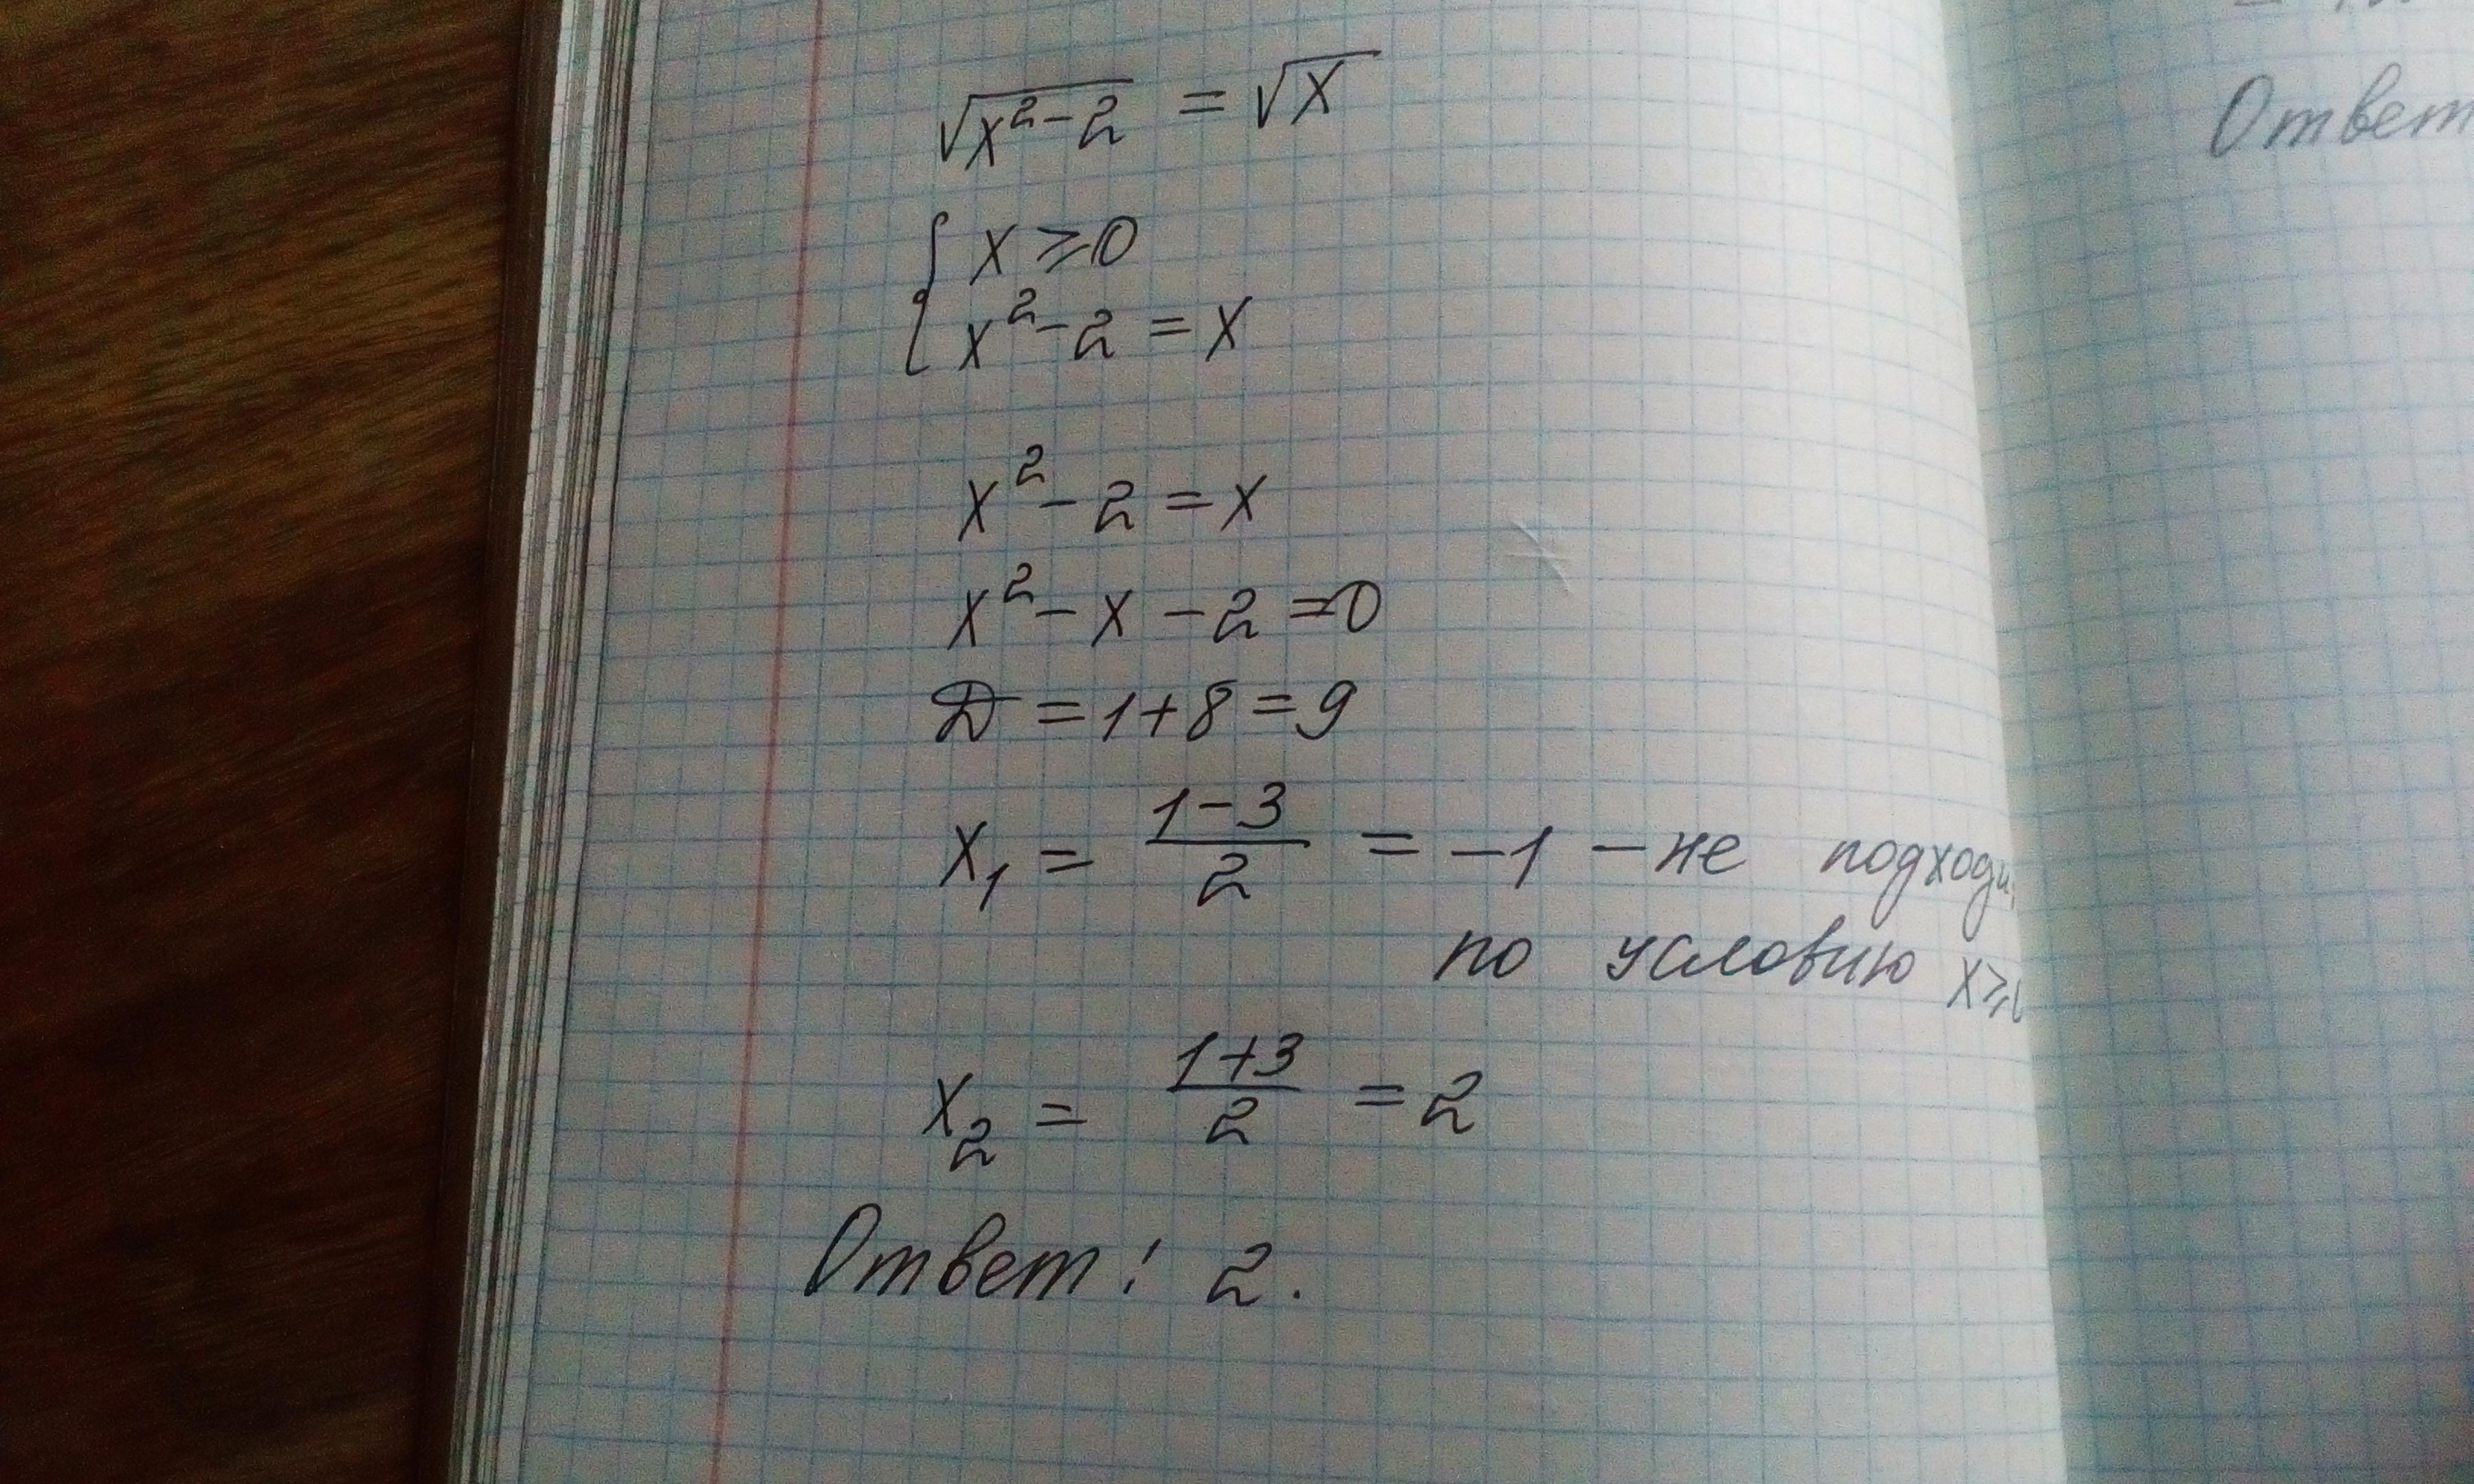 √x²-2 = √x
{ x ≥ 0
x² - 2 = x
x² - 2 = x
x² - x - 2 = 0
Д = 1 + 8 = 9
x₁ = (1-3)/2 = -1 - не
по условию x ≥
x₂ = (1+3)/2 = 2
Ответ: 2.
Ответ